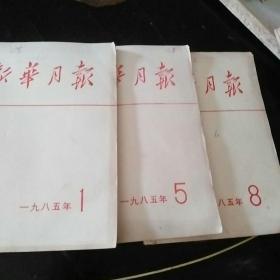 新華月報
一九八五年 1
華月報
一九八五年 5
月報
八五年 8